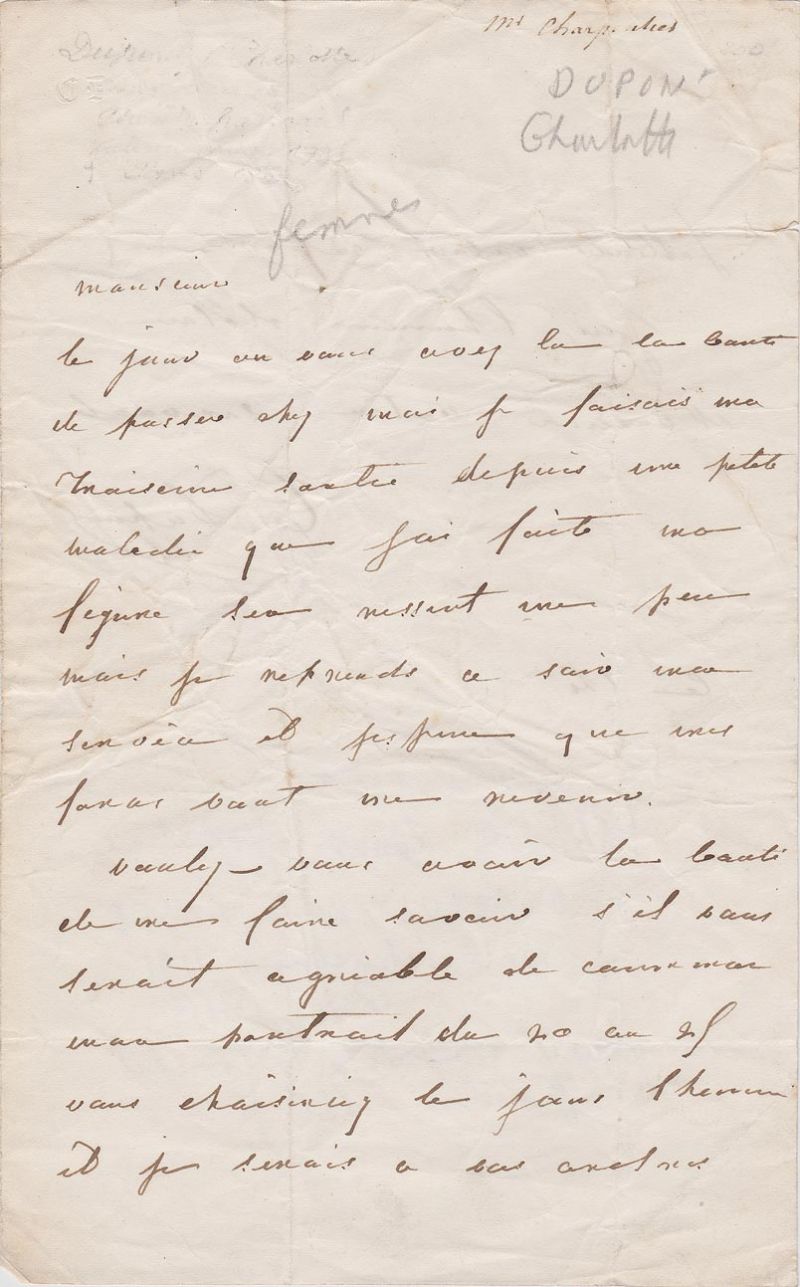 Mr Charpentier
DUPONT
Charlotte
femmes
monsieur
le jour ou vous avez la la bonté
de passer chez moi je faisais ma
troiseime sortie depuis une petite
maladie que j'ai faite ma
figure sen ressent un peu
mais je reprends a soir mon
service et jespere que mes
forces vont me revenir.
voulez-vous avoir la bonté
de me faire savoir s'il vous
serait agréable de commencer
mon portrait du 20 au 25
vous choisiriez le jour l'heure
et je serais a vos ordres